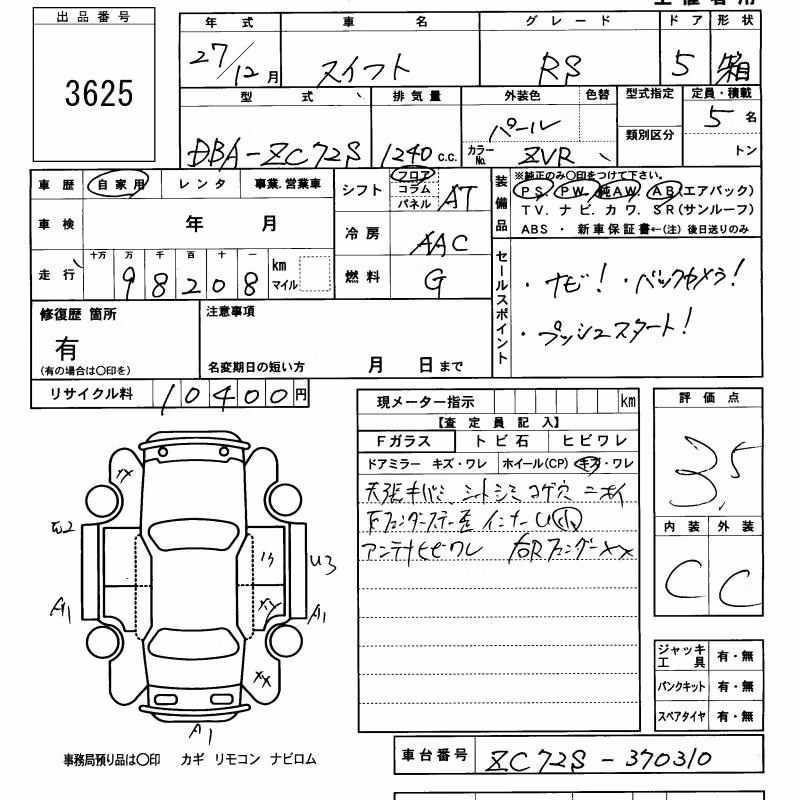 出品番号
3625
年式 車名 グレード ドア 形状
27/12月 スイフト RS 5 箱
型式 排気量 外装色 色替 型式指定 定員・積載
DBA-ZC72S 1240c.c. パール カラーNo. ZVR 類別区分 5名 トン
車歴 自家用 レンタ 事業.営業車
車検 年 月
走行 十万 万 千 百 十 一
98208 km マイル
シフト フロア コラム パネル AT
冷房 AAC
燃料 G
装備品
※純正のみ〇印をつけて下さい。
PS. PW. 純AW. AB(エアバック)
TV. ナビ. カワ. SR(サンルーフ)
ABS ・ 新車保証書←(注) 後日送りのみ
セールスポイント
・ナビ! ・バックカメラ!
・プッシュスタート!
修復歴 箇所
有
(有の場合は〇印を)
注意事項
名変期日の短い方 月 日まで
リサイクル料 10400円
現メーター指示 km
【査定員記入】
Fガラス トビ石 ヒビワレ
ドアミラー キズ・ワレ ホイール(CP) キズ・ワレ
天張キバミ シートシミ コゲ穴 ニオイ
アンテナヒビワレ 右Rフェンダーxx
評価点
3.5
内装 外装
C C
ジャッキ工具 有・無
パンクキット 有・無
スペアタイヤ 有・無
xx
U3
A1
A1
xx
xx
A1
事務局預り品は〇印 カギ リモコン ナビロム
車台番号 ZC72S-370310